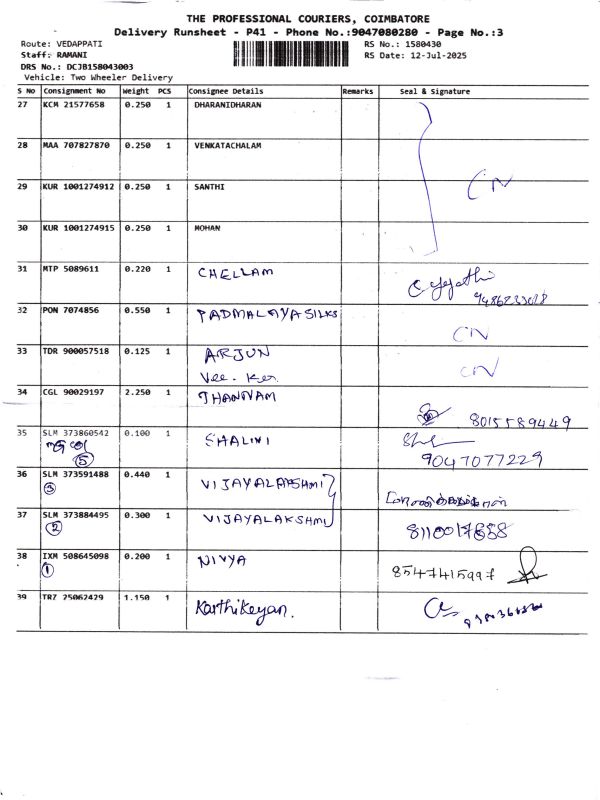 THE PROFESSIONAL COURIERS, COIMBATORE
Delivery Runsheet - P41 - Phone No.:9047080280 - Page No.:3
Route: VEDAPPATI RS No.: 1580430
Staff: RAMANI RS Date: 12-Jul-2025
DRS No.: DCJB158043003
Vehicle: Two Wheeler Delivery
S No Consignment No Weight PCS Consignee Details Remarks Seal & Signature
27 KCM 21577658 0.250 1 DHARANIDHARAN
28 MAA 707827870 0.250 1 VENKATACHALAM
CN
29 KUR 1001274912 0.250 1 SANTHI
30 KUR 1001274915 0.250 1 MOHAN
31 MTP 5089611 0.220 1 CHELLAM
32 PON 7074856 0.550 1 PADMALAYA SILKS
CN
33 TDR 900057518 0.125 1 ARJUN
Vee. Ken
CN
34 CGL 90029197 2.250 1 THANGAM
8015589449
35 SLM 373860542 0.100 1 SHALINI
5
9047077229
36 SLM 373591488 0.440 1 VIJAYALAKSHMI
3
37 SLM 373884495 0.300 1 VIJAYALAKSHMI
2
8110017658
38 IXM 508645098 0.200 1 NIVYA
1
8547415997
39 TRZ 25062429 1.150 1 Karthikeyan.